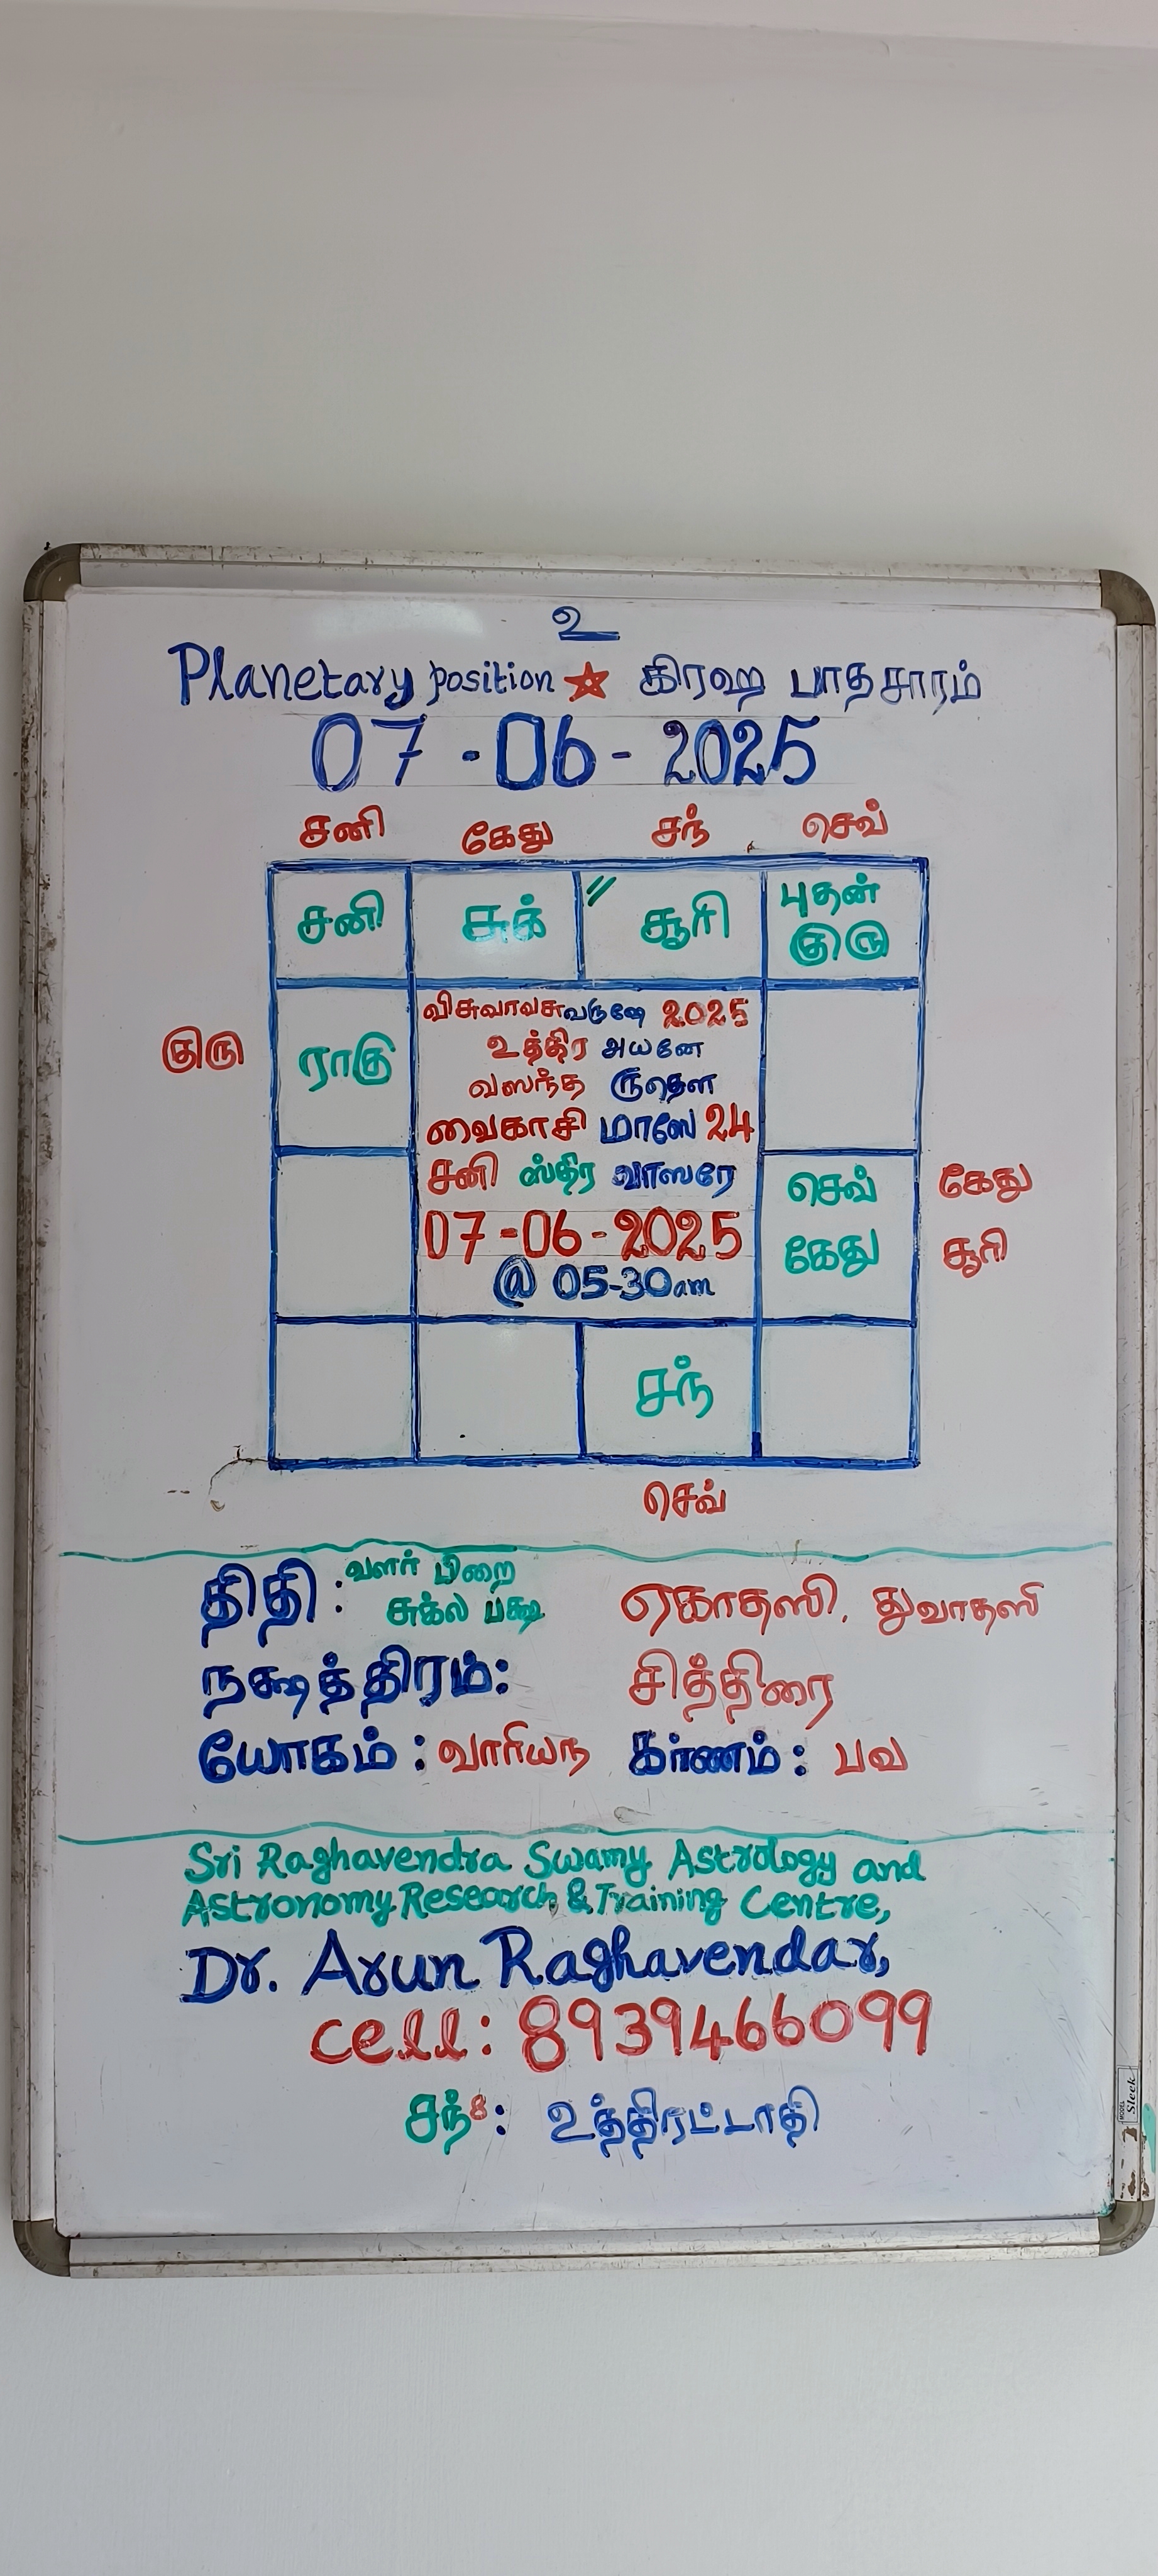 உ
Planetary position ☆ கிரஹ பாதசாரம்
07-06-2025
சனி கேது சந் செவ்
சனி சுக் // சூரி புதன்
குரு
விசுவாவசுவருஷே 2025
உத்திர அயனே
குரு ராகு வஸந்த ருதௌ
வைகாசி மாஸே 24
சனி ஸ்திர வாஸரே செவ் கேது
07-06-2025 கேது சூரி
@ 05-30am
சந்
செவ்
திதி : வளர் பிறை
சுக்ல பக்ஷ ஏகாதஸி, துவாதஸி
நக்ஷத்திரம்: சித்திரை
யோகம் : வாரியந கர்ணம் : பவ
Sri Raghavendra Swamy Astrology and
Astronomy Research & Training Centre,
Dr. Arun Raghavendar,
cell: 8939466099
சந்8: உத்திரட்டாதி
Sleek